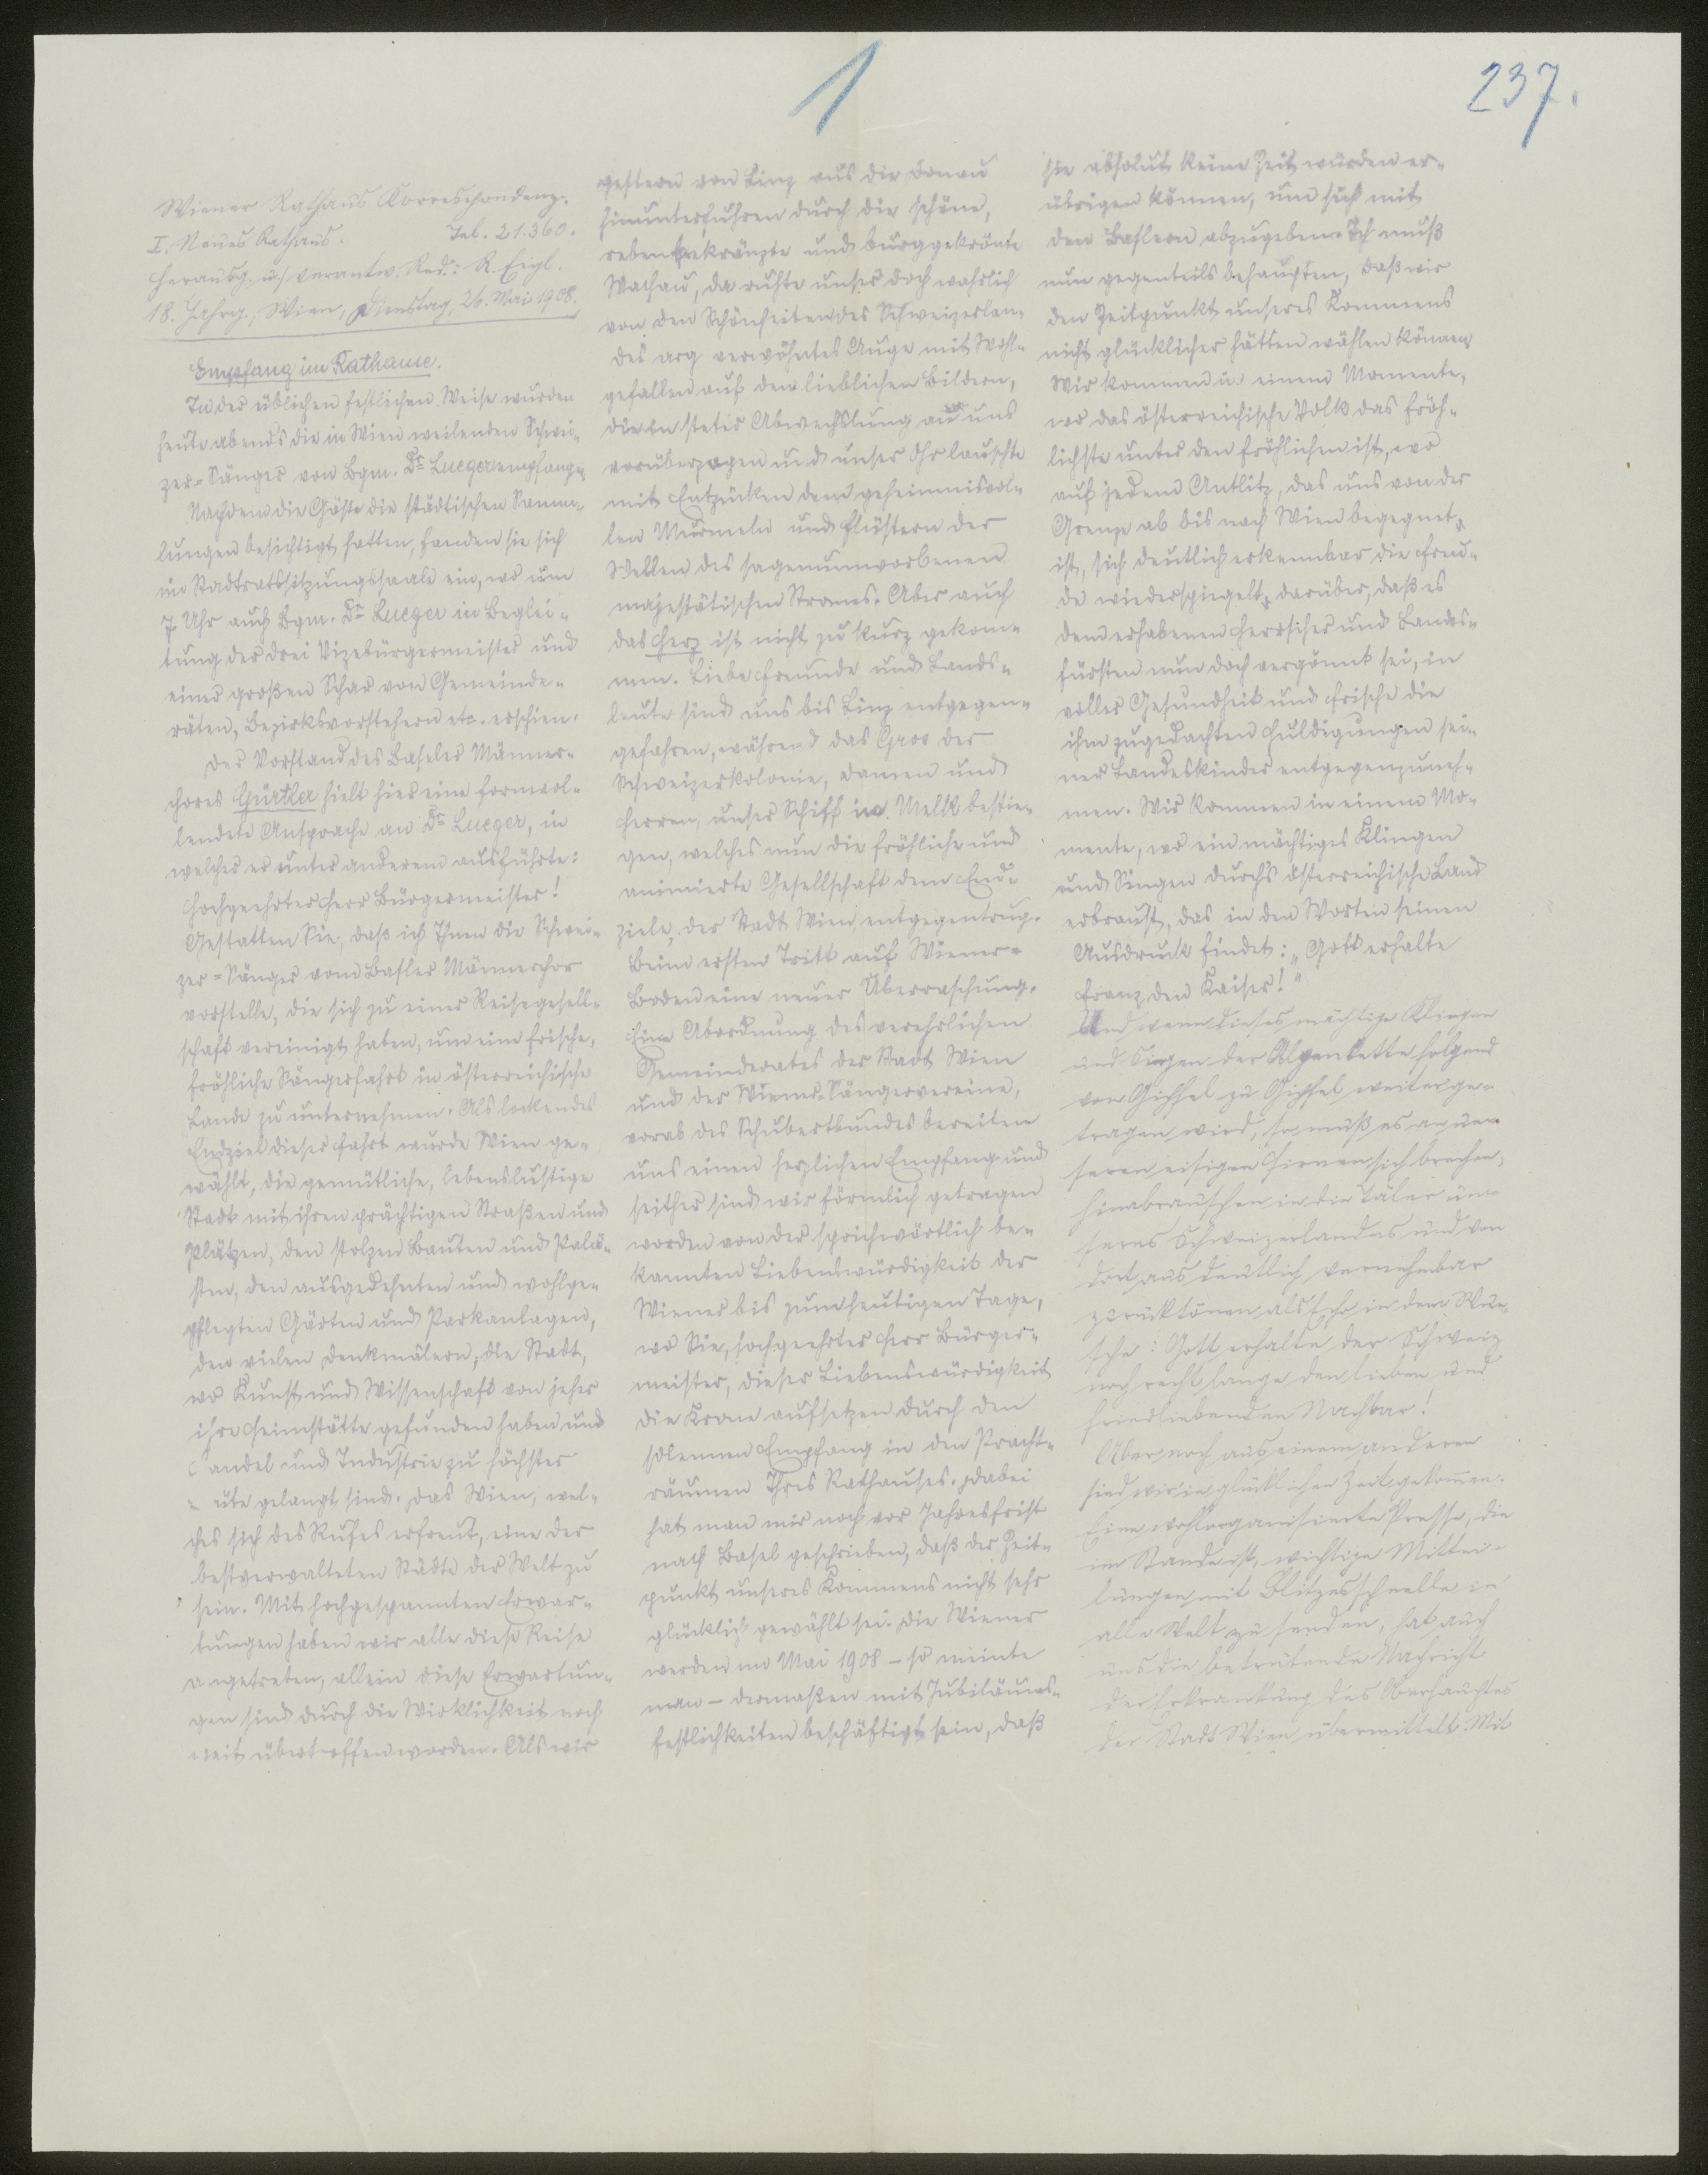 1
237.
Wiener Rathaus Korrespondenz.
I. Neues Rathaus. Tel. 21.360.
Herausg. u. verantw. Red.: R. Eigl.
18. Jahrg., Wien, Dienstag, 26. Mai 1908.
Empfang im Rathause.
In der üblichen festlichen Weise wurden
heute abends die in Wien weilenden Schwei-
zer-Sänger von Bgm. Dr. Lueger empfangen.
Nachdem die Gäste die städtischen Samm-
lungen besichtigt hatten, fanden sie sich
im Stadtratssitzungssaale ein, wo um
7 Uhr auch Bgm. Dr. Lueger in Beglei-
tung der drei Vizebürgermeister und
einer großen Schar von Gemeinde-
räten, Bezirksvorstehern etc. erschien.
Der Vorstand des Baseler Männer-
chores Gürtler hielt hier eine formvol-
lendete Ansprache an Dr. Lueger, in
welcher er unter anderem ausführte:
Hochgeehrter Herr Bürgermeister!
Gestatten Sie, daß ich Ihnen die Schwei-
zer-Sänger vom Basler Männerchor
vorstelle, die sich zu einer Reisegesell-
schaft vereinigt haben, um eine frische,
fröhliche Sängerfahrt in österreichische
Lande zu unternehmen. Als lockendes
Endziel dieser Fahrt wurde Wien ge-
wählt, die gemütliche, lebenslustige
Stadt mit ihren prächtigen Straßen und
Plätzen, den stolzen Bauten und Palä-
sten, den ausgedehnten und wohlge-
pflegten Gärten und Parkanlagen,
den vielen Denkmälern, die Stadt,
wo Kunst und Wissenschaft von jeher
ihre Heimstätte gefunden haben und
Handel und Industrie zu höchster
üte gelangt sind. Das Wien, wel-
ches sich des Rufes erfreut, eine der
bestverwalteten Städte der Welt zu
sein. Mit hochgespannten Erwar-
tungen haben wir alle diese Reise
angetreten, allein diese Erwartun-
gen sind durch die Wirklichkeit noch
weit übertroffen worden. Als wir
gestern von Linz aus die Donau
hinunterfuhren durch die schöne,
rebenbekränzte und burggekrönte
Wachau, da ruhte unser doch wahrlich
von den Schönheiten des Schweizerlan-
des arg verwöhntes Auge mit Wohl-
gefallen auf den lieblichen Bildern,
die in steter Abwechslung an uns
vorüberzogen und unser Ohr lauschte
mit Entzücken dem geheimnisvol-
len Murmeln und Flüstern der
Wellen des sagenumworbenen
majestätischen Stromes. Aber auch
das Herz ist nicht zu kurz gekom-
men. Liebe Freunde und Lands-
leute sind uns bis Linz entgegen-
gefahren, während das Gros der
Schweizerkolonie, Damen und
Herren, unser Schiff in Melk bestie-
gen, welches nun die fröhliche und
animierte Gesellschaft dem End-
ziele, der Stadt Wien entgegentrug.
Beim ersten Tritt auf Wiener-
Boden eine neuer Überraschung.
Eine Abordnung des verehrlichen
Gemeinderates der Stadt Wien
und der Wiener-Sängervereine,
vorab des Schubertbundes bereiten
uns einen herzlichen Empfang und
seither sind wir förmlich getragen
worden von der sprichwörtlich be-
kannten Liebenswürdigkeit der
Wiener bis zum heutigen Tage,
wo Sie, hochgeehrter Herr Bürger-
meister, dieser Liebenswürdigkeit
die Krone aufsetzen durch den
solennen Empfang in den Pracht-
räumen Ihres Rathauses. Dabei
hat man mir noch vor Jahresfrist
nach Basel geschrieben, daß der Zeit-
punkt unseres Kommens nicht sehr
glücklich gewählt sei. Die Wiener
werden im Mai 1908 – so meinte
man – dermaßen mit Jubiläums-
festlichkeiten beschäftigt sein, daß
sie absolut keine Zeit würden er-
übrigen können, um sich mit
den Baslern abzugeben. Ich muß
nun gegenteils behaupten, daß wir
den Zeitpunkt unseres Kommens
nicht glücklicher hätten wählen können.
Wir kommen in einem Momente,
wo das österreichische Volk das fröh-
lichste unter den fröhlichen ist, wo
auf jedem Antlitz, das uns von der
Grenze ab bis nach Wien begegnet
ist, sich deutlich erkennbar die Freu-
de wiederspiegelt darüber, daß es
dem erhabenen Herrscher und Landes-
fürsten nun doch vergönnt sei, in
voller Gesundheit und Frische die
ihm zugedachten Huldigungen sei-
ner Landeskinder entgegenzuneh-
men. Wir kommen in einem Mo-
mente, wo ein mächtiges Klingen
und Singen durch's österreichische Land
erbraust, das in den Worten seinen
Ausdruck findet: „Gott erhalte
Franz den Kaiser!"
Und wenn dieses mächtige Klingen
und Singen der Alpenkette folgend
von Gipfel zu Gipfel weiter ge-
tragen wird, so muß es an un-
seren eisigen Firnen sich brechen,
hinabrauschen in die Täler un-
seres Schweizerlandes und von
dort aus deutlich vernehmbar
zurücktönen als Echo in dem Wun-
sche: Gott erhalte der Schweiz
noch recht lange den lieben und
friedliebenden Nachbar!
Aber noch aus einem anderen
sind wir in glücklichen Zeit gekommen.
Eine wohlorganisierte Presse, die
im Stande ist, wichtige Mittei-
lungen mit Blitzesschnelle in
alle Welt zu senden, hat auch
uns die betrübende Nachricht
der Erkrankung des Oberhauptes
der Stadt Wien übermittelt. Mit